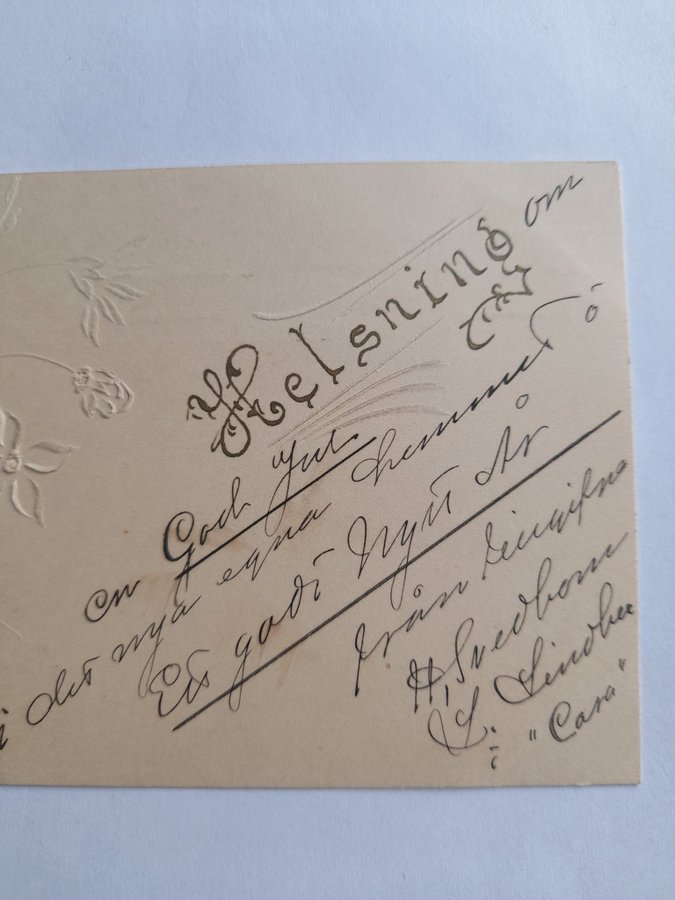 Helsning om
en God Jul
i det nya egna hemmet ó
Ett godt Nytt År
från
H, Svedbom
L. Lindbe
i "Casa"